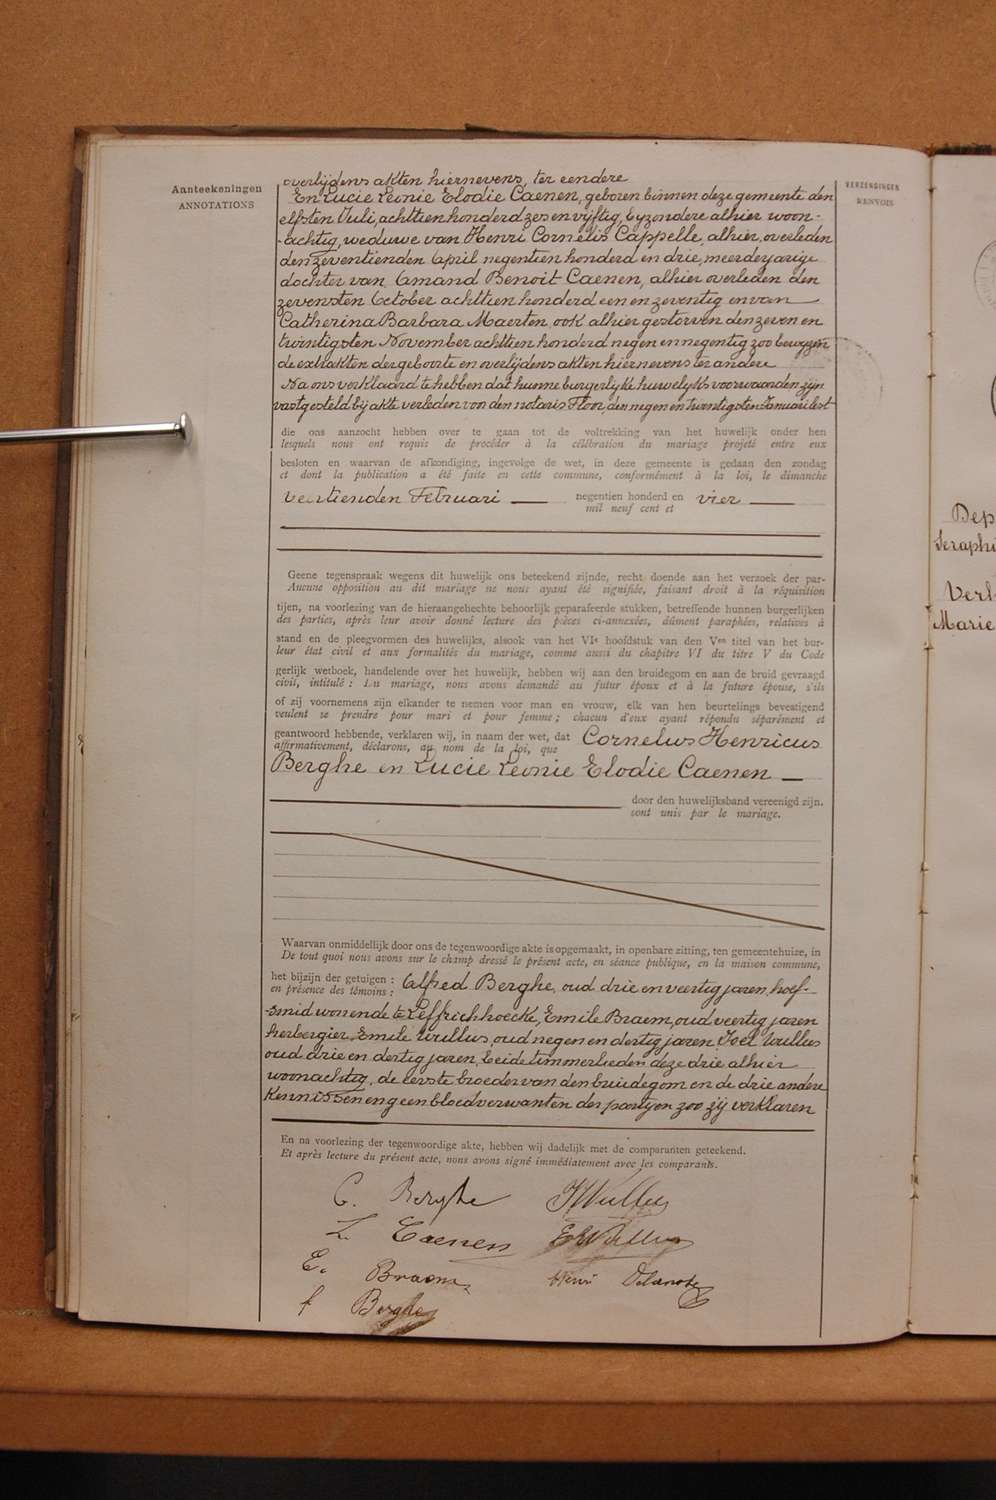 Aanteekeningen
ANNOTATIONS
VERZENDINGEN
RENVOIS
overlijdens akten hiernevens, ter eendere
En Lucie Leonie Elodie Caenen, geboren binnen deze gemeente den
elfsten Juli, achttien honderd zes en vijftig, byzondere alhier woon-
-achtig, weduwe van Henri Cornelis Cappelle, alhier overleden
den zeventienden April negentien honderd en drie, meerderjarige
dochter van Amand Benoit Caenen, alhier overleden den
zevensten October achttien honderd een en zeventig en van
Catherina Barbara Maerten, ook alhier gestorven den zeven en
twintigsten November achttien honderd negen en negentig zoo bewyzen
de extrakten der geboorte en overlijdens akten hiernevens ter andere
Na ons verklaard te hebben dat hunne burgerlyke huwelyks voorwaarden zijn
vastgesteld bij akte verleden voor den notaris Floor, den negen en twintigsten Januari lest
die ons aanzocht hebben over te gaan tot de voltrekking van het huwelijk onder hen
lesquels nous ont requis de procéder à la célébration du mariage projeté entre eux
besloten en waarvan de afkondiging, ingevolge de wet, in deze gemeente is gedaan den zondag
et dont la publication a été faite en cette commune, conformément à la loi, le dimanche
veertienden Februari negentien honderd en vier
mil neuf cent et
Geene tegenspraak wegens dit huwelijk ons beteekend zijnde, recht doende aan het verzoek der par-
Aucune opposition au dit mariage ne nous ayant été signifiée, faisant droit à la réquisition
tijen, na voorlezing van de hieraangehechte behoorlijk geparafeerde stukken, betreffende hunnen burgerlijken
des parties, après leur avoir donné lecture des pièces ci-annexées, dûment paraphées, relatives à
stand en de pleegvormen des huwelijks, alsook van het VIe hoofdstuk van den Ven titel van het bur-
leur état civil et aux formalités du mariage, comme aussi du chapitre VI du titre V du Code
gerlijk wetboek, handelende over het huwelijk, hebben wij aan den bruidegom en aan de bruid gevraagd
civil, intitulé : Du mariage, nous avons demandé au futur époux et à la future épouse, s'ils
of zij voornemens zijn elkander te nemen voor man en vrouw, elk van hen beurtelings bevestigend
veulent se prendre pour mari et pour femme ; chacun d'eux ayant répondu séparément et
geantwoord hebbende, verklaren wij, in naam der wet, dat Cornelius Henricus
affirmativement, déclarons, au nom de la loi, que
Berghe en Lucie Leonie Elodie Caenen
door den huwelijksband vereenigd zijn.
sont unis par le mariage.
Waarvan onmiddellijk door ons de tegenwoordige akte is opgemaakt, in openbare zitting, ten gemeentehuize, in
De tout quoi nous avons sur le champ dressé le présent acte, en séance publique, en la maison commune,
het bijzijn der getuigen : Alfred Berghe, oud drie en veertig jaren, hoef-
en présence des témoins :
-smid wonende te Leffrinchhoecke, Emile Braem, oud veertig jaren
herbergier, Emile Wullus, oud negen en dertig jaren, Joël Wullus
oud drie en dertig jaren, beide timmerlieden, deze drie alhier
woonachtig, de eerste broeder van den bruidegom en de drie andere
kennissen en geen bloedverwanten der partyen zoo zij verklaren
En na voorlezing der tegenwoordige akte, hebben wij dadelijk met de comparanten geteekend.
Et après lecture du présent acte, nous avons signé immédiatement avec les comparants.
C. Berghe J Wullus
L. Caenen E Wullus
E. Braem Henri Delanote
A Berghe
Dep
Seraphi
Verh
Marie